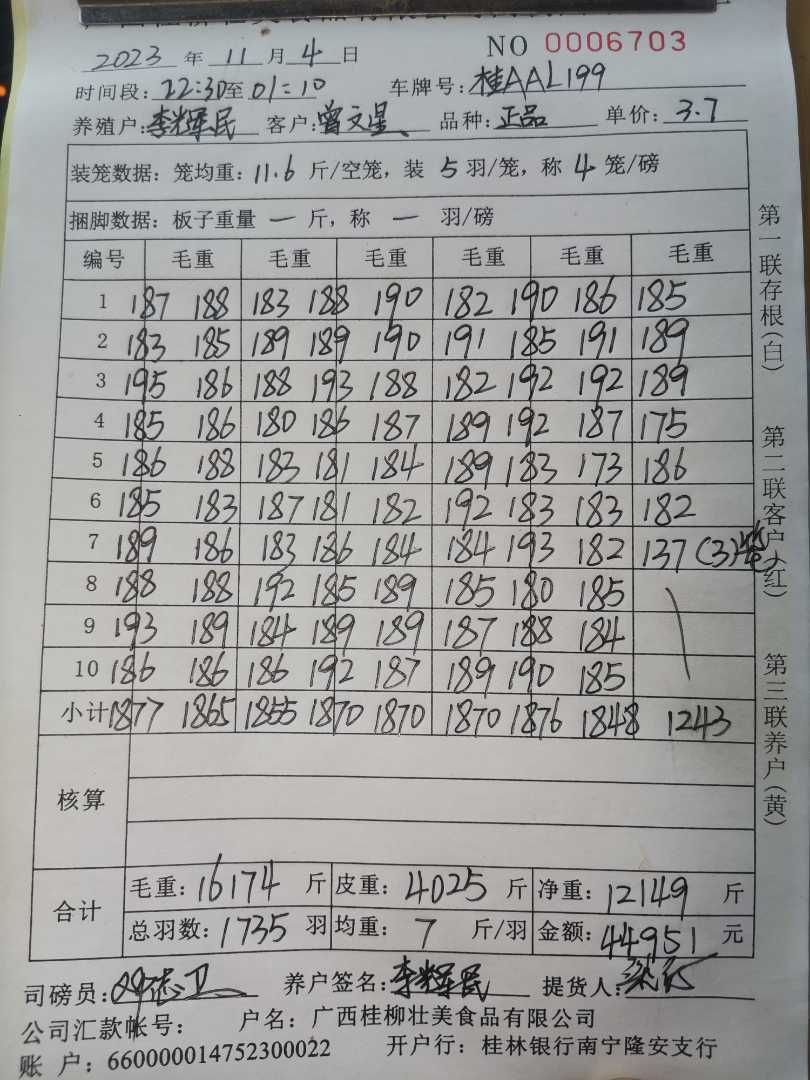 2023 年 11 月 4 日 NO 0006703
时间段: 22:30至 01:10 车牌号: 桂AAL199
养殖户: 李辉民 客户: 曾文星 品种: 正品 单价: 3.7
装笼数据: 笼均重: 11.6 斤/空笼, 装 5 羽/笼, 称 4 笼/磅
捆脚数据: 板子重量 一 斤, 称 一 羽/磅
编号 毛重 毛重 毛重 毛重 毛重 毛重
1 187 188 183 188 190 182 190 186 185
2 183 185 189 189 190 191 185 191 189
3 195 186 188 193 188 182 192 192 189
4 185 186 180 186 187 189 192 187 175
5 186 188 183 181 184 189 183 173 186
6 185 183 187 181 182 192 183 183 182
7 189 186 183 186 184 184 193 182 137 (3)笼
8 188 188 192 185 189 185 180 185
9 193 189 184 189 189 187 188 184
10 186 186 186 192 187 189 190 185
小计 1877 1865 1855 1870 1870 1870 1876 1848 1243
核算
合计
毛重: 16174 斤 皮重: 4025 斤 净重: 12149 斤
总羽数: 1735 羽 均重: 7 斤/羽 金额: 44951 元
司磅员: 养户签名: 李辉民 提货人:
公司汇款帐号: 户名: 广西桂柳壮美食品有限公司
账 户: 660000014752300022 开户行: 桂林银行南宁隆安支行
第一联存根(白)
第二联客户(红)
第三联养户(黄)